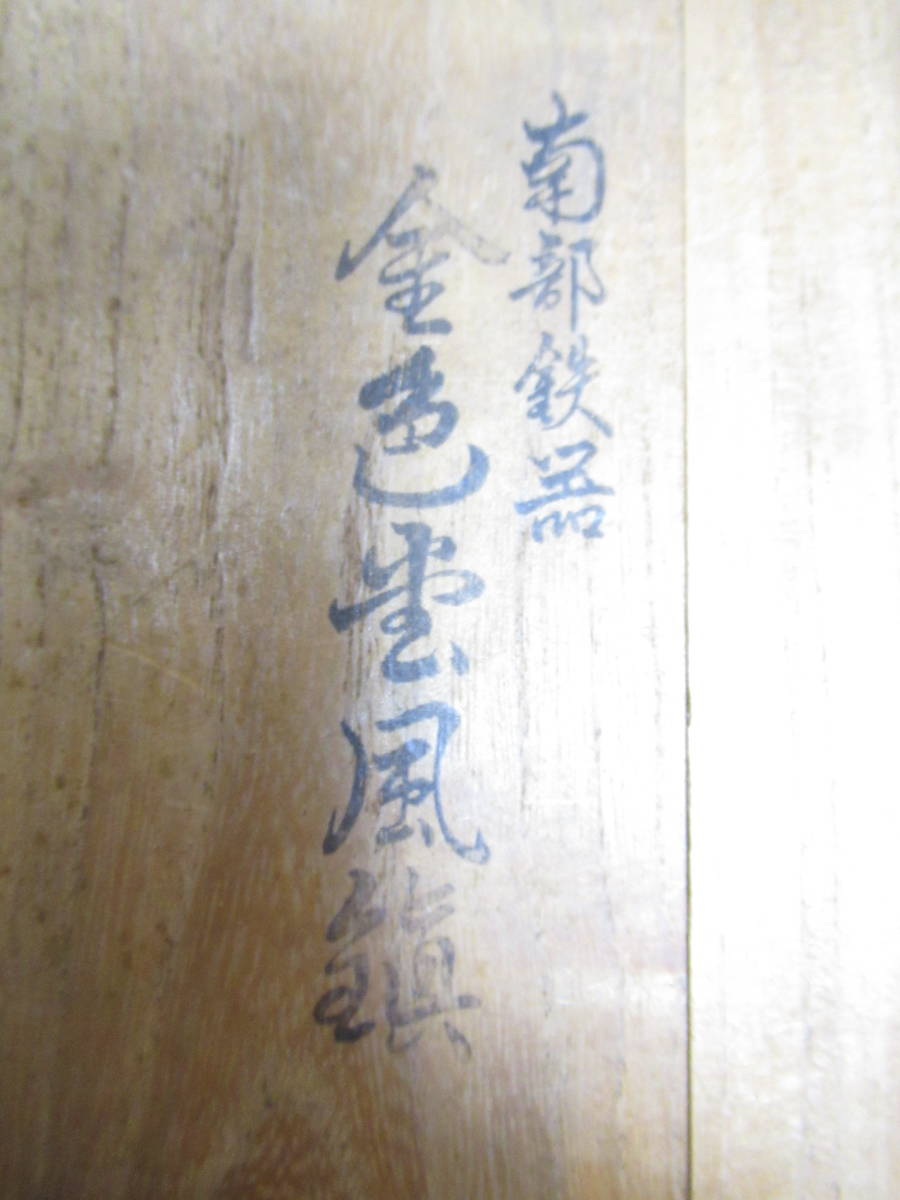 南部鉄器
金色堂風鎮